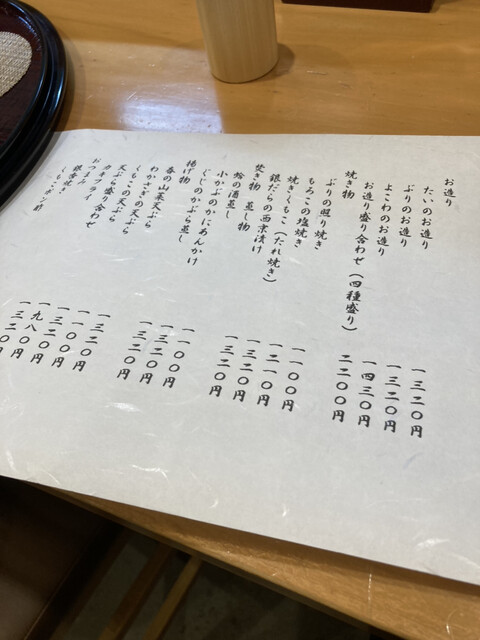 お造り
たいのお造り 一三二〇円
ぶりのお造り 一三二〇円
よこわのお造り 一四三〇円
お造り盛り合わせ(四種盛り) 二二〇〇円
焼き物
ぶりの照り焼き 一一〇〇円
もろこの塩焼き 一二一〇円
焼きくもこ(たれ焼き) 一三二〇円
銀だらの西京漬け 一三二〇円
炊き物 蒸し物
蛤の酒蒸し 一一〇〇円
小かぶのかにあんかけ 一三二〇円
ぐじのかぶら蒸し 一三二〇円
揚げ物
春の山菜天ぷら 一三二〇円
わかさぎの天ぷら 一一〇〇円
くもこの天ぷら 一三二〇円
天ぷら盛り合わせ 一九八〇円
カキフライ 一三二〇円
おつまみ
銀杏焼き
くもこポン酢